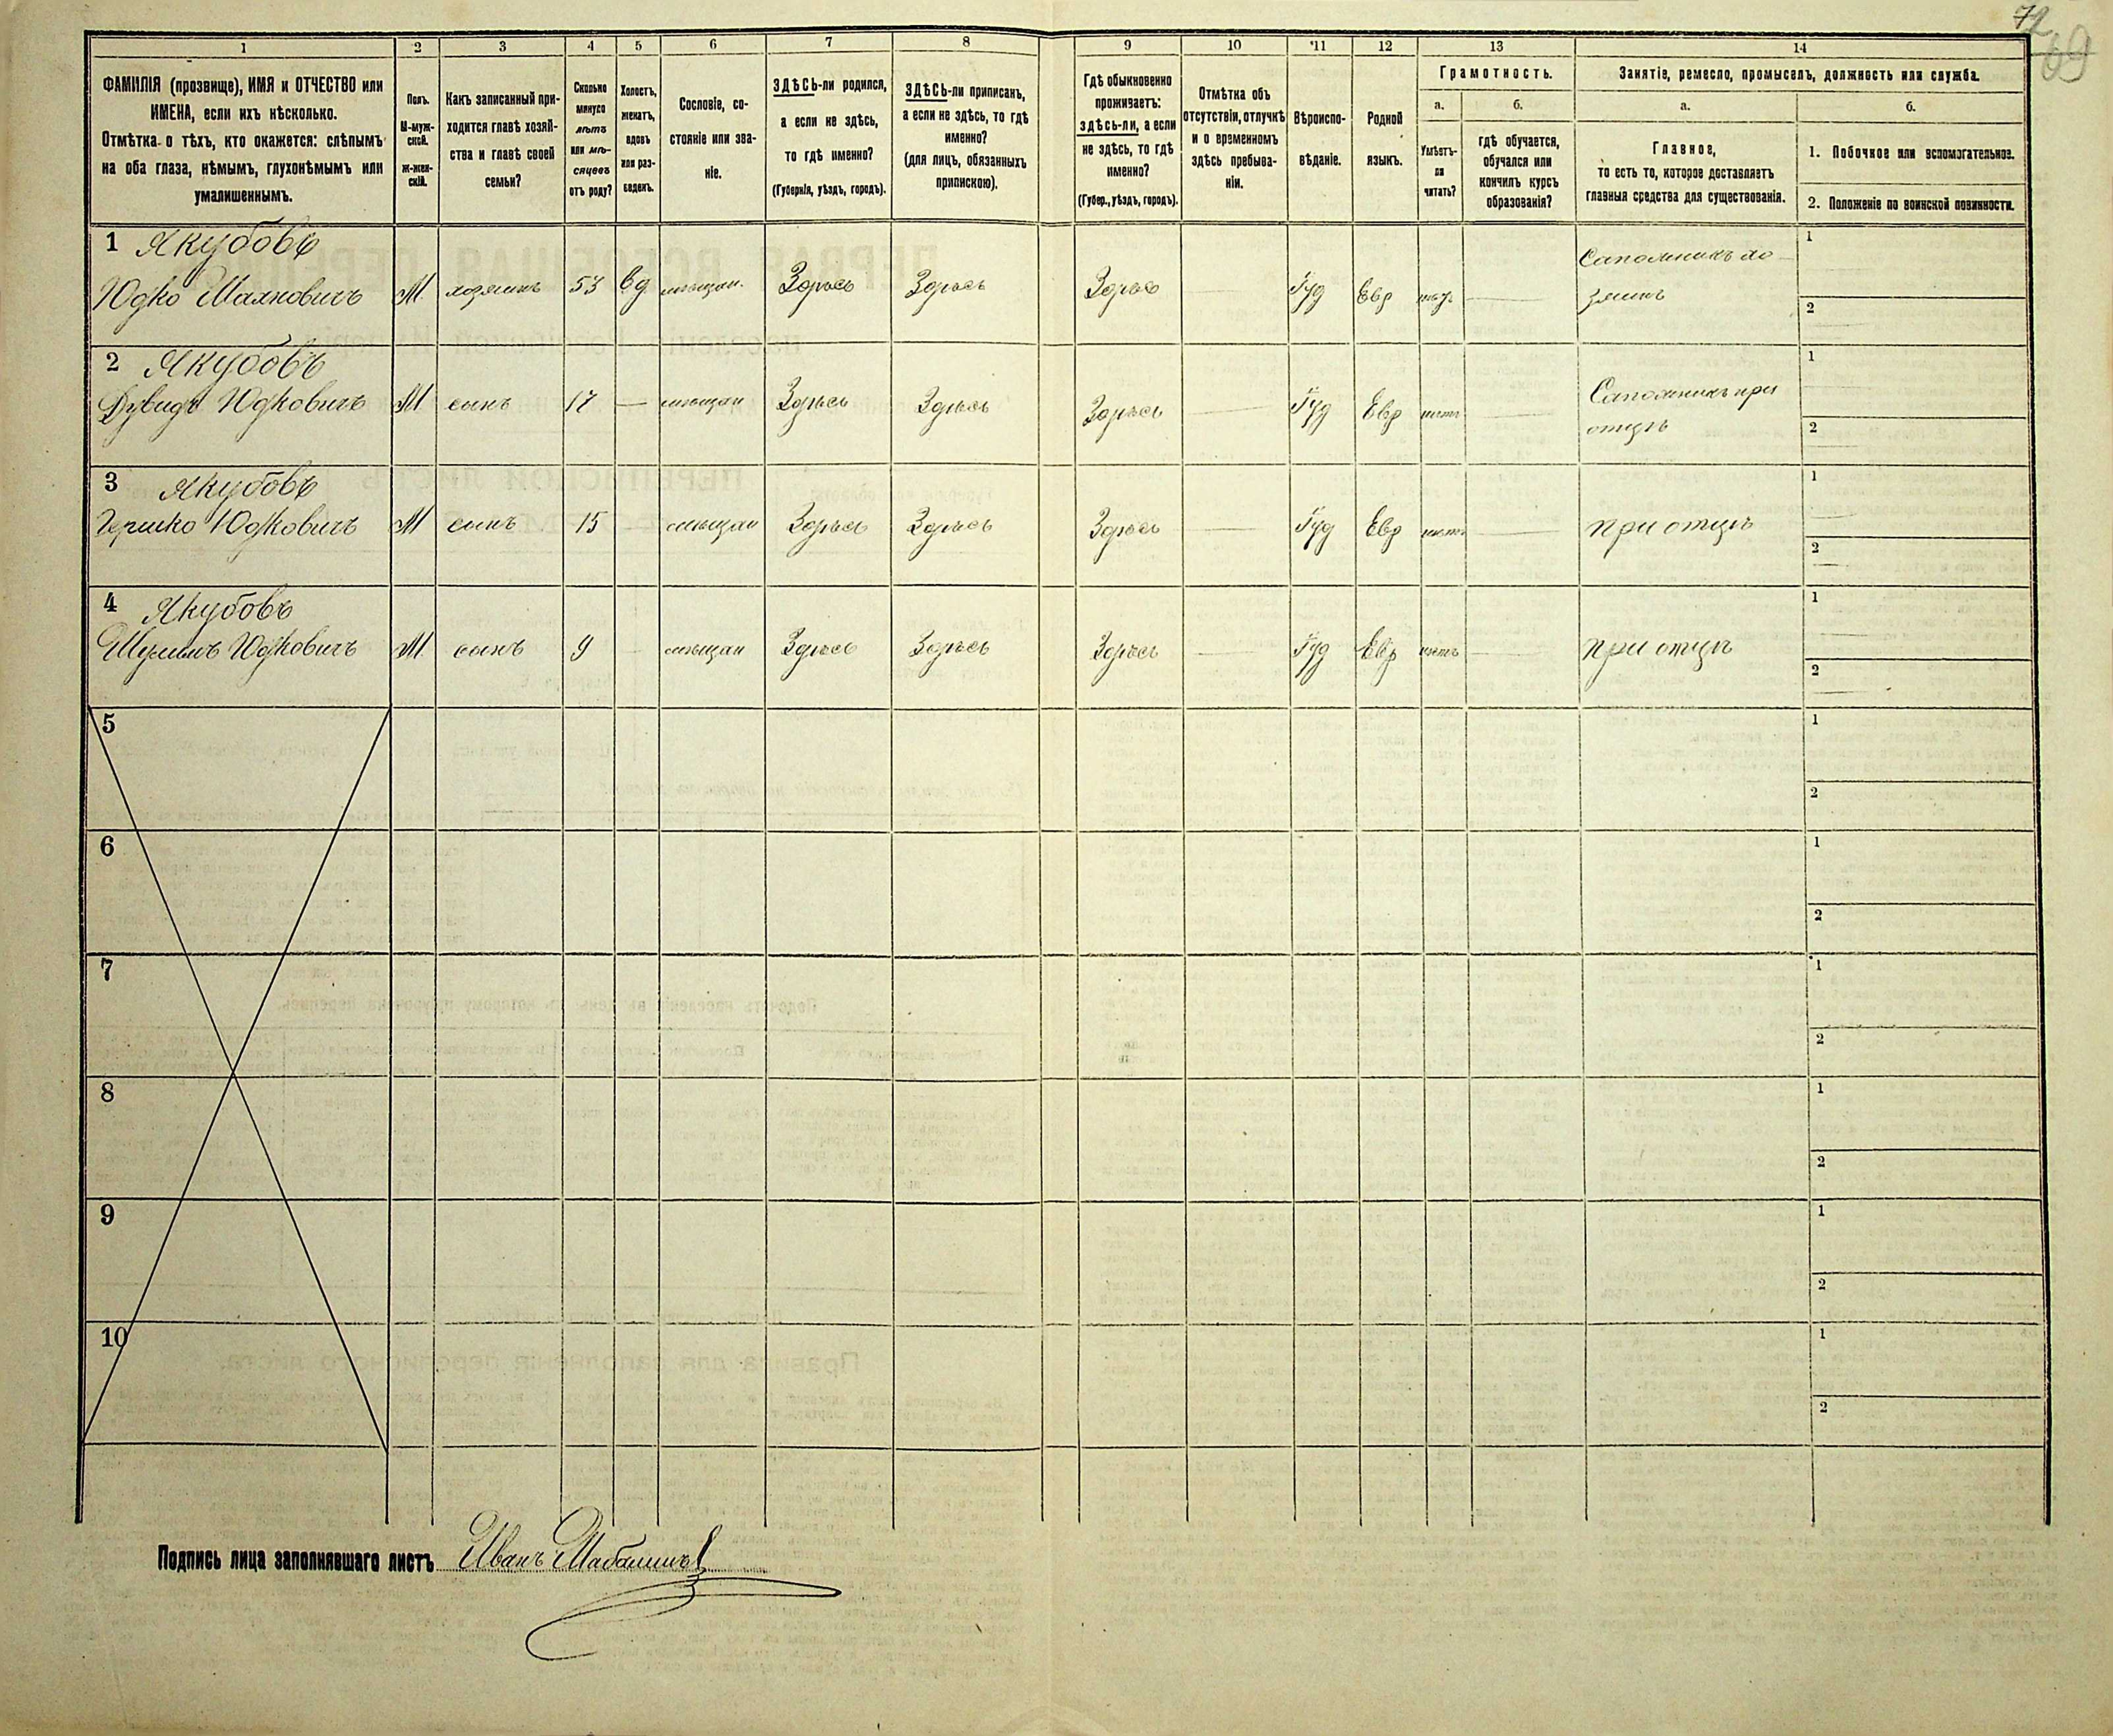 72
69
1
2
3
4
5
6
7
8
9
10
11
12
13
14
ФАМИЛІЯ (прозвище), ИМЯ и ОТЧЕСТВО или
ИМЕНА, если ихъ нѣсколько.
Отмѣтка о тѣхъ, кто окажется: слѣпымъ
на оба глаза, нѣмымъ, глухонѣмымъ или
умалишеннымъ.
Полъ.
М-муж-
ской.
Ж-жен-
скій.
Какъ записанный при-
ходится главѣ хозяй-
ства и главѣ своей
семьи?
Сколько
минуло
лѣтъ
или мѣ-
сяцевъ
отъ роду?
Холостъ,
женатъ,
вдовъ
или раз-
веденъ.
Сословіе, со-
стояніе или зва-
ніе.
ЗДѢСЬ-ли родился,
а если не здѣсь,
то гдѣ именно?
(Губернія, уѣздъ, городъ).
ЗДѢСЬ-ли приписанъ,
а если не здѣсь, то гдѣ
именно?
(для лицъ, обязанныхъ
припискою).
Гдѣ обыкновенно
проживаетъ:
здѣсь-ли, а если
не здѣсь, то гдѣ
именно?
(Губер., уѣздъ, городъ).
Отмѣтка объ
отсутствіи, отлучкѣ
и о временномъ
здѣсь пребыва-
ніи.
Вѣроиспо-
вѣданіе.
Родной
языкъ.
Грамотность.
а.
Умѣетъ-
ли
читать?
б.
гдѣ обучается,
обучался или
кончилъ курсъ
образованія?
Занятіе, ремесло, промыселъ, должность или служба.
а.
Главное,
то есть то, которое доставляетъ
главныя средства для существованія.
б.
1. Побочное или вспомогательное.
2. Положеніе по воинской повинности.
1 Якубовъ
Юдко М. хозяинъ 53 вд мѣщан. Здѣсь Здѣсь Здѣсь Іуд Евр Сапожникъ хо-
зяинъ
1
2
2 Якубовъ
Дувидъ Юдковичъ М сынъ 17 — мѣщан Здѣсь Здѣсь Здѣсь Іуд Евр нѣтъ Сапожникъ при
отцѣ
1
2
3 Якубовъ
Гершко Юдковичъ М сынъ 15 мѣщан Здѣсь Здѣсь Здѣсь Іуд Евр нѣтъ при отцѣ
1
2
4 Якубовъ
Шулимъ Юдковичъ М. сынъ 9 мѣщан Здѣсь Здѣсь Здѣсь Іуд Евр нѣтъ при отцѣ
1
2
5
1
2
6
1
2
7
1
2
8
1
2
9
1
2
10
1
2
Подпись лица заполнявшаго листъ Иванъ